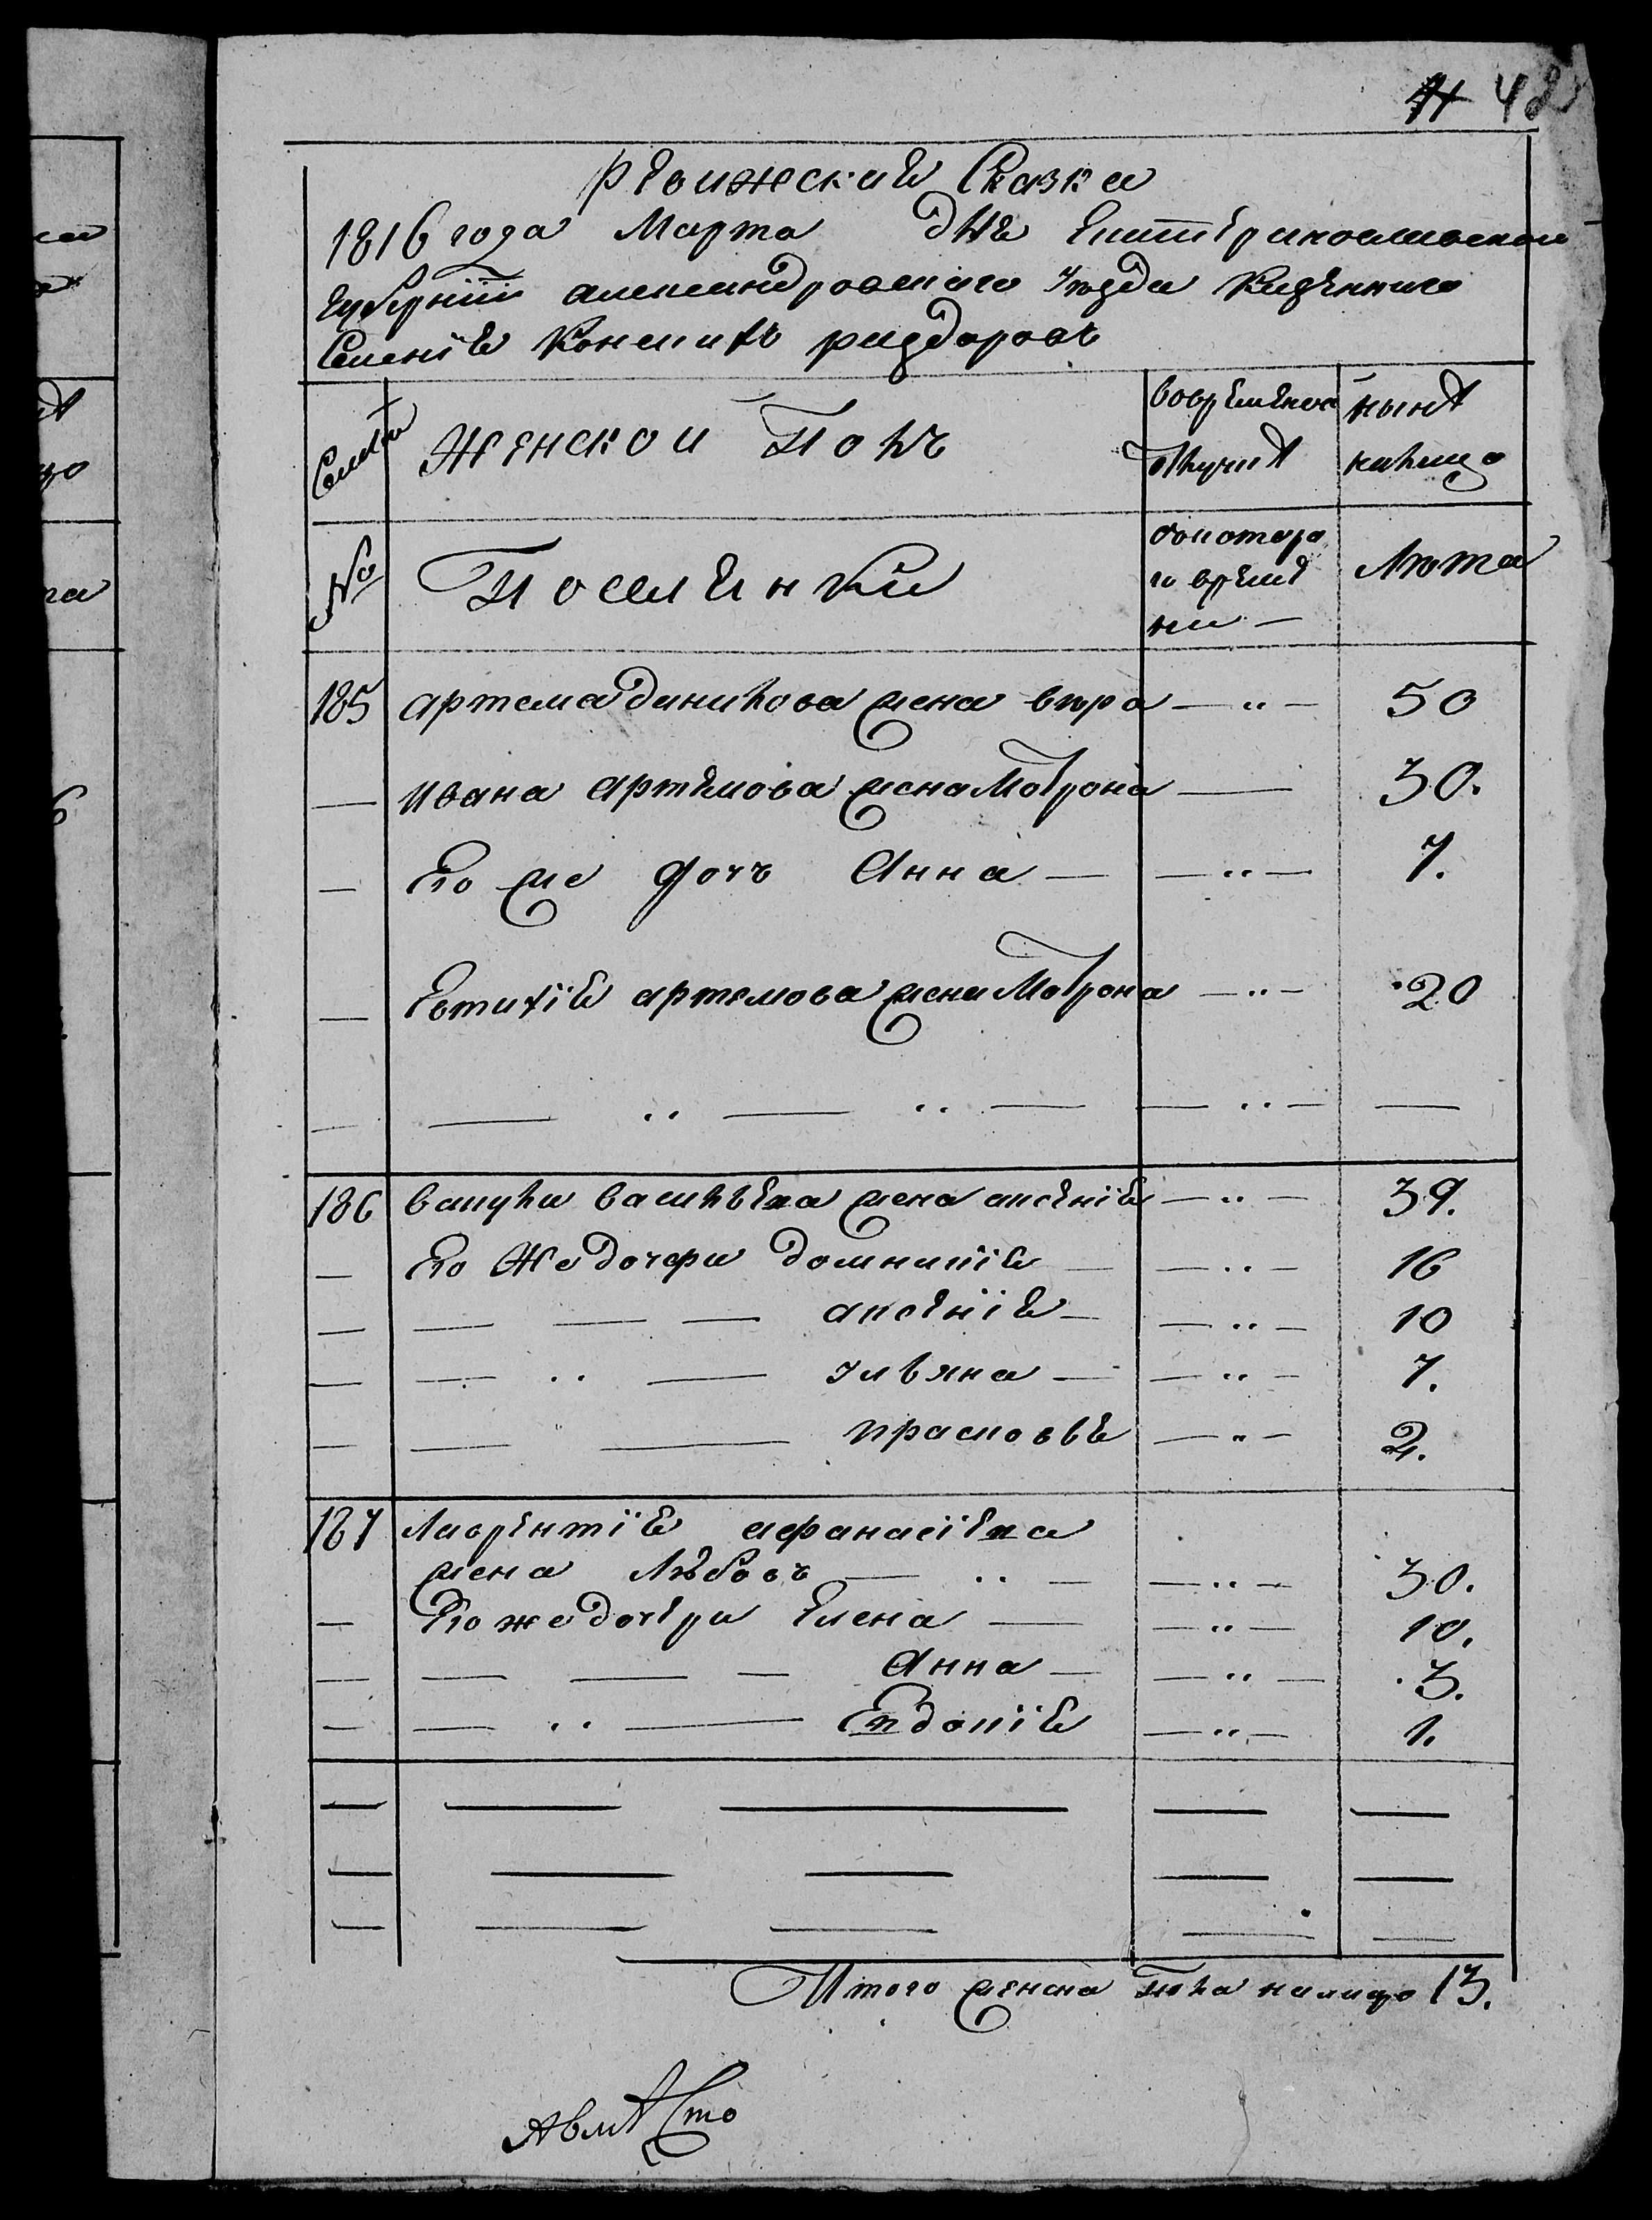 42
Ревижская Сказка
1816 года Марта дня Екатеринославской
Губернїи александровскаго уезда Казенного
Селенїя Конскихъ раздоровъ
Семьи
Женской Полъ
вовременной
отлучкѣ
нынѣ
налицо
№
Поселянки
скотора
го време
ни —
Лѣта
185 артема данилова жена вѣра — „ — 50
— ивана артемова жена Мотрона — 30.
— Его же дочъ Анна — — „ — 7.
— Евтихїя артемова жена Мотрона — „ — 20
— — „ — „ — — „ — —
186 васильева жена аксенїя — „ — 39.
— Его Же дочери домникїя — — „ — 16
— — — — аксенїя — — „ — 10
— — „ — ульяна — — „ — 7.
— — „ — прасковья — „ — 2.
187 Лаврентїя афанасїева
жена Любовъ — „ — — „ — 30.
— Его же дочери Елена — — „ — 10.
— — — — Анна — — „ — 3.
— — „ — Евдокїя — „ — 1.
Итого женска пола налицо 13.